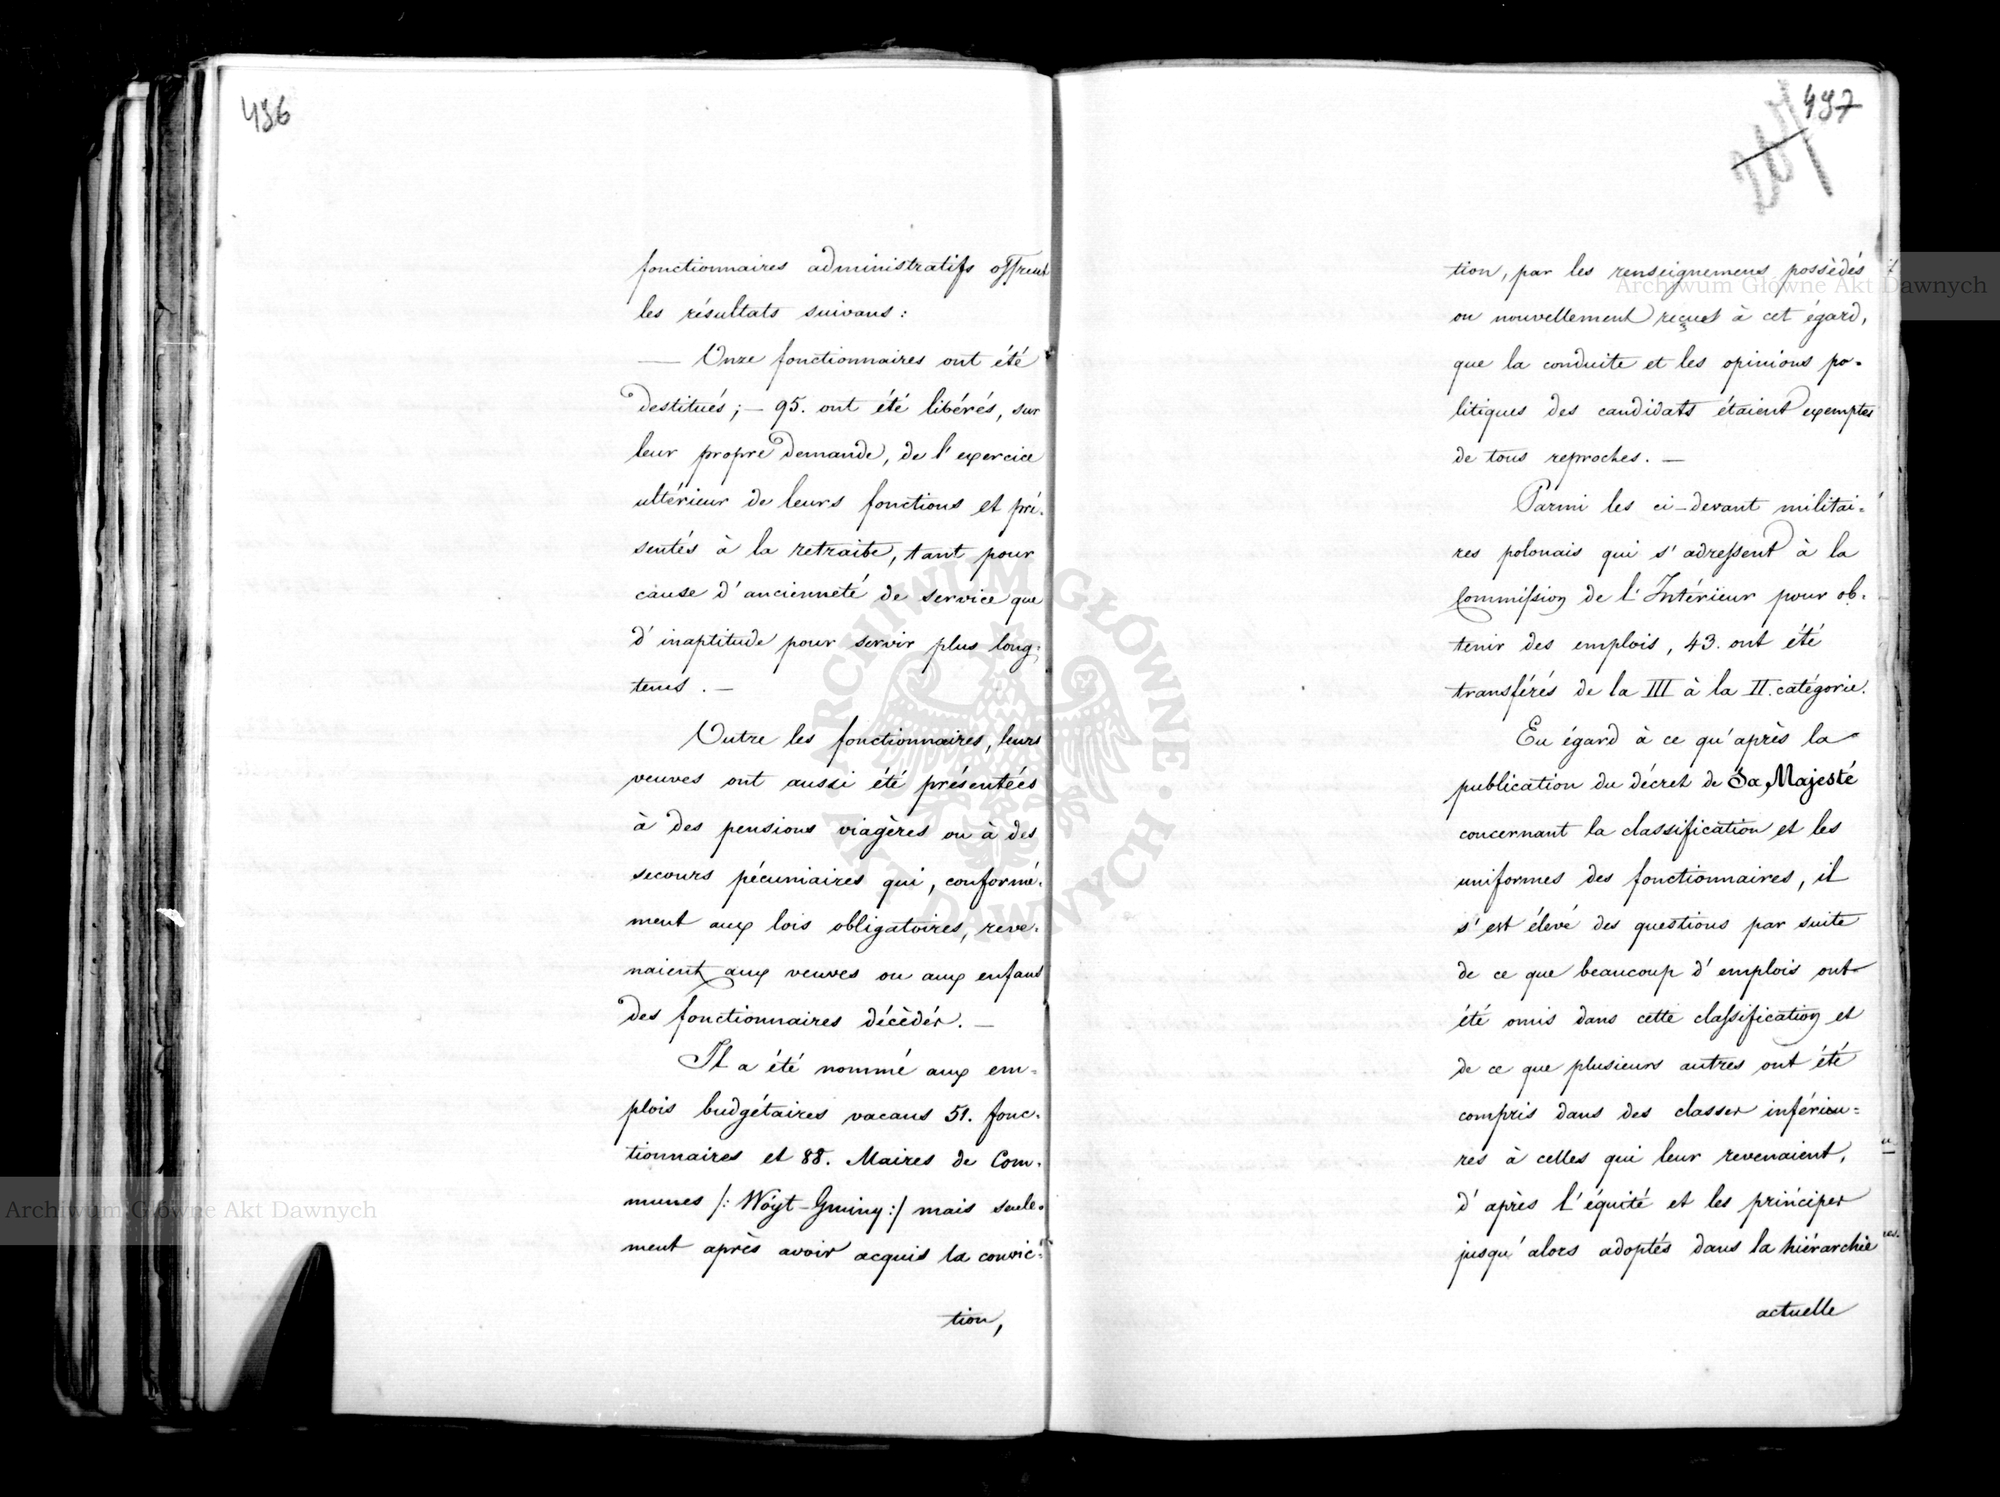 496
fonctionnaires administratifs offrent
les résultats suivans :
— Onze fonctionnaires ont été
destitués ; — 95. ont été libérés, sur
leur propre demande, de l'exercice
ultérieur de leurs fonctions et pré-
sentés à la retraite, tant pour
cause d'ancienneté de service que
d'inaptitude pour servir plus long-
tems . —
Outre les fonctionnaires, leurs
veuves ont aussi été présentées
à des pensions viagères ou à des
secours pécuniaires qui, conformé-
ment aux lois obligatoires, reve-
naient aux veuves ou aux enfans
des fonctionnaires décédés. —
Il a été nommé aux em-
plois budgétaires vacans 51. fonc-
tionnaires et 88. Maires de Com-
munes /: Wóyt-Gminy :/ mais seule-
ment après avoir acquis la convic-
tion,
497
tion, par les renseignemens possédés
ou nouvellement reçus à cet égard,
que la conduite et les opinions po-
litiques des candidats étaient exemptes
de tous reproches. —
Parmi les ci-devant militai-
res polonais qui s'adressent à la
Commission de l'Intérieur pour ob-
tenir des emplois, 43. ont été
transférés de la III à la II. catégorie.
Eu égard à ce qu'après la
publication du décret de Sa Majesté
concernant la classification et les
uniformes des fonctionnaires, il
s'est élevé des questions par suite
de ce que beaucoup d'emplois ont
été omis dans cette classification et
de ce que plusieurs autres ont été
compris dans des classes inférieu-
res à celles qui leur revenaient,
d'après l'équité et les principes
jusqu'alors adoptés dans la hiérarchie
actuelle
Archiwum Główne Akt Dawnych
Archiwum Główne Akt Dawnych
ARCHIWUM GŁÓWNE · AKT DAWNYCH ·